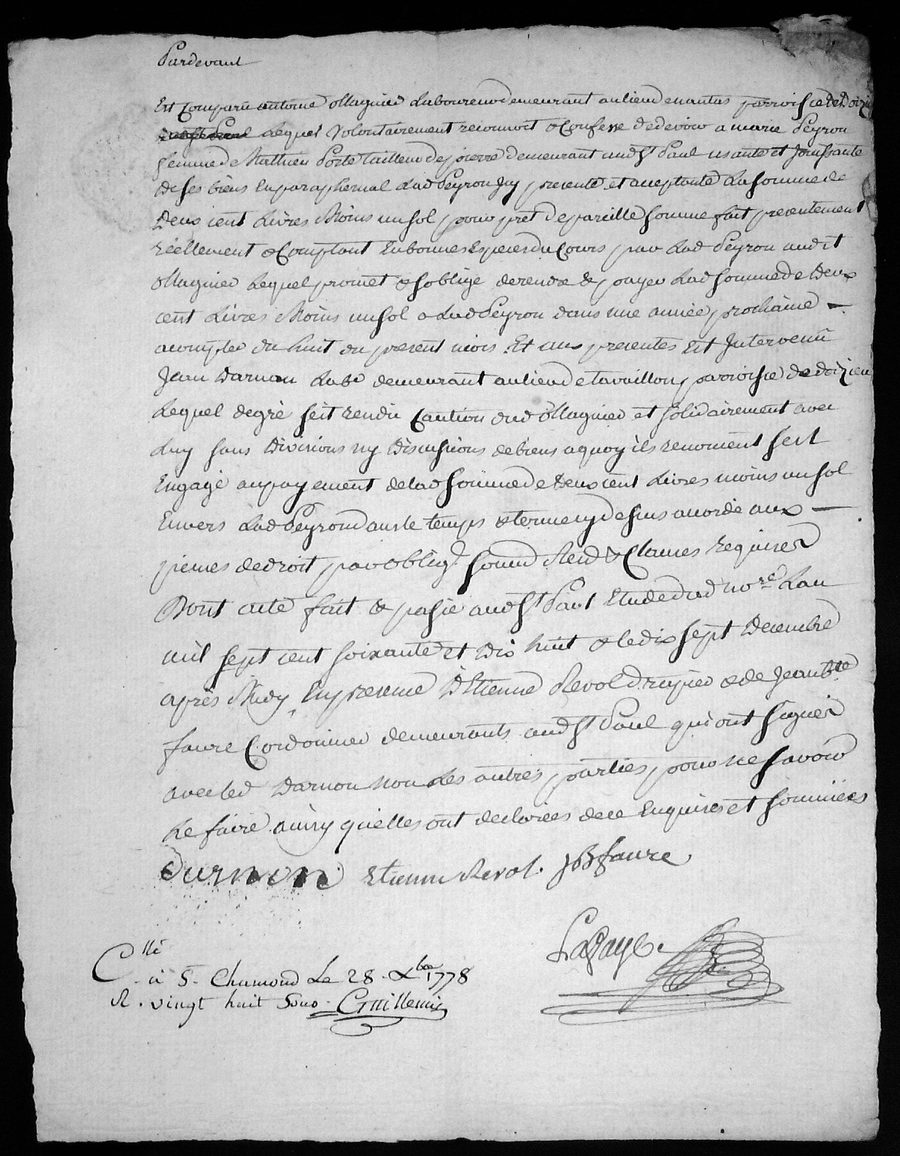 Pardevant
Est Comparu antoine Magnier Laboureur demeurant aulieu denantas parroisse de Doizieu
Lequel Volontairement reconnoit & Confesse de devoir a marie Peyron
femme de Mathieu Porte tailleur de pierre demeurant aud St Paul usante et Jouissante
de ses biens En paraphernal Lad Peyron Icy presente et acceptante La somme de
Deux cent Livres Moins un sol pour pret de pareille somme fait presentement
réellement & Comptant En bonnes Especes du Cours par Lad Peyron audit
Magnier Lequel promet & soblige de rendre & payer Lad somme de Deux
cent Livres Moins un sol a Lad Peyron dans une année prochaine
a compter du huit du present mois. Et aux presentes Est Intervenu
Jean Darnon Labr demeurant aulieu de tavaillon parroisse de doizieu
Lequel de gré sest rendu Caution dud Magnier et solidairement avec
Luy sans Divisions ny Discusions de biens a quoy ils renoncent sest
Engagé au payement de lad somme de deux cent Livres moins un sol
Envers Lad Peyron dans le temps & termes cy dessus accordé aux
peines de droit par oblig. soum Rend & Clauses Requises
Dont acte fait & passé aud St Paul Etude dud nore Lan
mil sept cent soixante et Dix huit & le dix sept Decembre
après Midy, En presence D'Etienne Revol & de Jean Bte
faure Cordonnier demeurants aud St Paul qui ont signés
avec led Darnon non Les autres parties pour ne savoir
Le faire ainsy quelles ont declarées de ce Enquises et sommées
Darnon Etienne Revol. JB faure
Lafaye.
Cllé
à S. Chamond Le 28. Xbre 1778
R. vingt huit sous. Guillemin